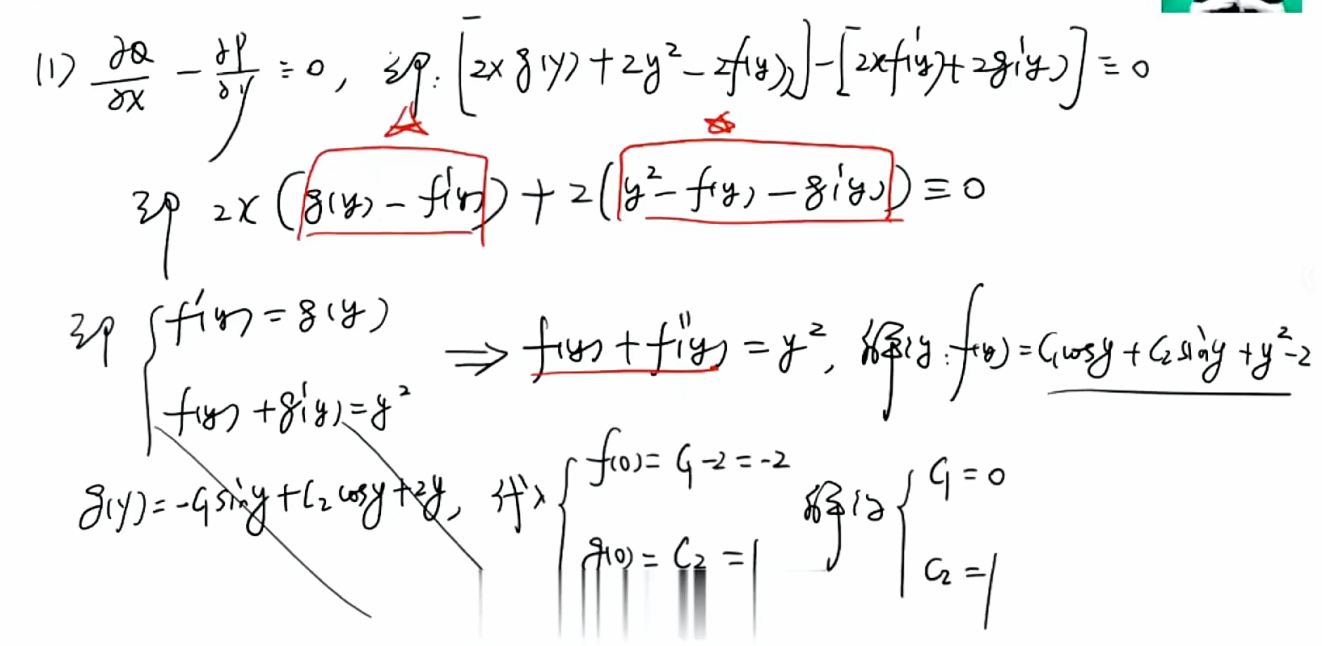 (1) ∂Q/∂x - ∂P/∂y ≡ 0, 即: [2xg(y) + 2y² - 2f(y)] - [2xf'(y) + 2g'(y)] ≡ 0
即 2x(g(y) - f'(y)) + 2(y² - f(y) - g'(y)) ≡ 0
即 { f'(y) = g(y)
f(y) + g'(y) = y²
⇒ f(y) + f''(y) = y², 解得: f(y) = C₁cosy + C₂siny + y² - 2
g(y) = -C₁siny + C₂cosy + 2y, 代入 { f(0) = C₁ - 2 = -2
g(0) = C₂ = 1
解得 { C₁ = 0
C₂ = 1